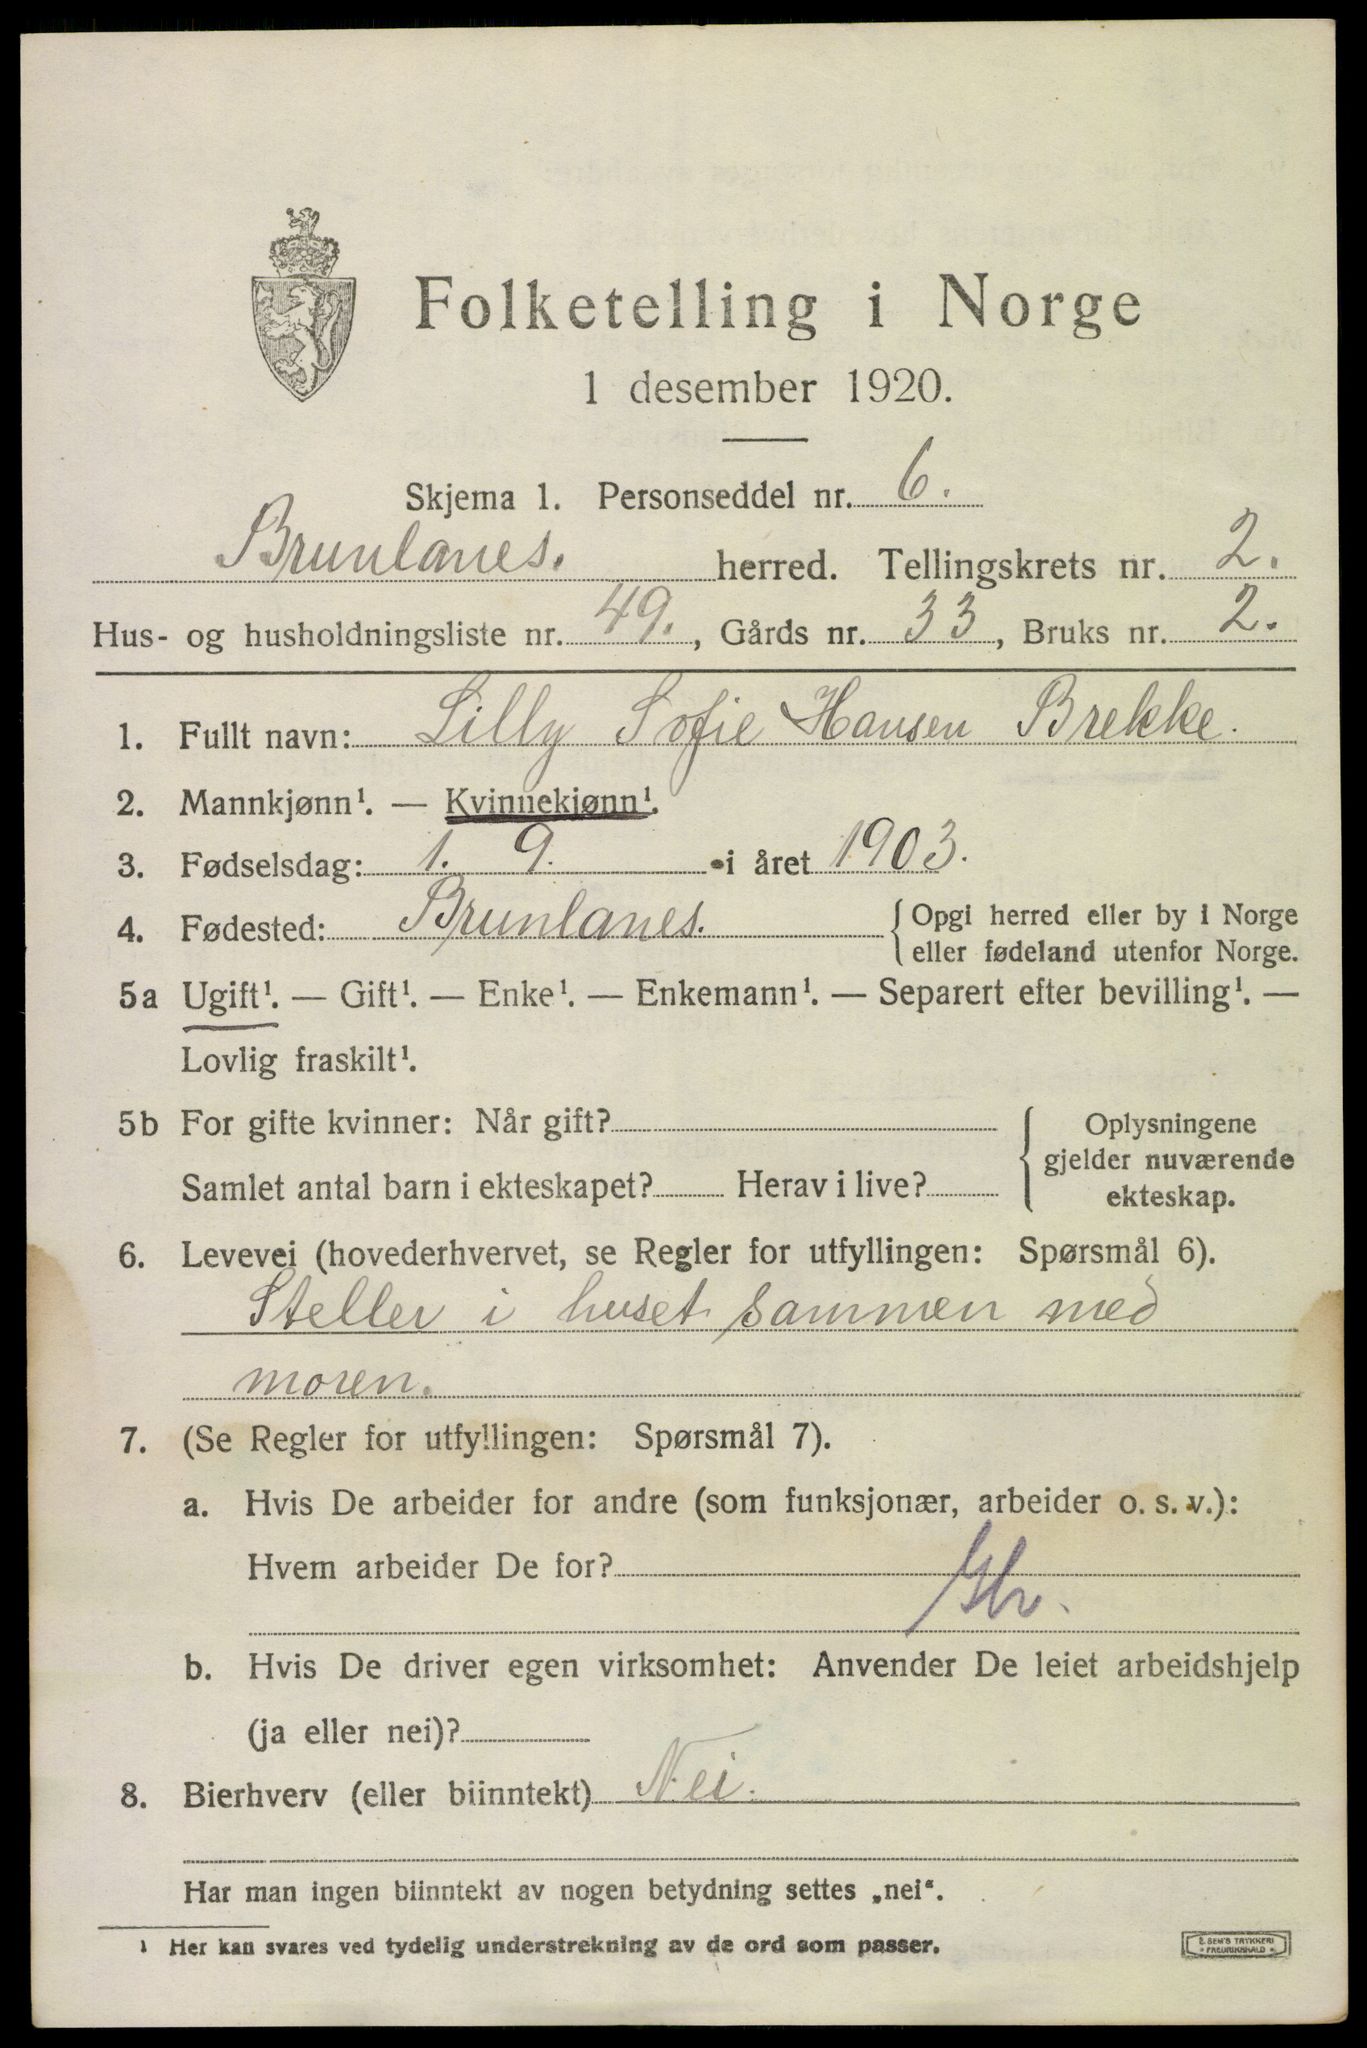 Folketelling i Norge
1 desember 1920.
Skjema 1. Personseddel nr. 6.
Brunlanes. herred. Tellingskrets nr. 2.
Hus- og husholdningsliste nr. 49., Gårds nr. 33, Bruks nr. 2.
1. Fullt navn: Lilly Sofie Hansen Brekke.
2. Mannkjønn¹. — Kvinnekjønn¹.
3. Fødselsdag: 1. 9. i året 1903.
4. Fødested: Brunlanes. { Opgi herred eller by i Norge
eller fødeland utenfor Norge.
5a Ugift¹. — Gift¹. — Enke¹. — Enkemann¹. — Separert efter bevilling¹. —
Lovlig fraskilt¹.
5b For gifte kvinner: Når gift?
Samlet antal barn i ekteskapet? Herav i live?
{ Oplysningene
gjelder nuværende
ekteskap.
6. Levevei (hovederhvervet, se Regler for utfyllingen: Spørsmål 6).
Steller i huset sammen med
moren.
7. (Se Regler for utfyllingen: Spørsmål 7).
a. Hvis De arbeider for andre (som funksjonær, arbeider o. s. v.):
Hvem arbeider De for?
b. Hvis De driver egen virksomhet: Anvender De leiet arbeidshjelp
(ja eller nei)?
8. Bierhverv (eller biinntekt) Nei.
Har man ingen biinntekt av nogen betydning settes „nei“.
¹ Her kan svares ved tydelig understrekning av de ord som passer.
E. SEM'S TRYKKERI
FREDRIKSHALD